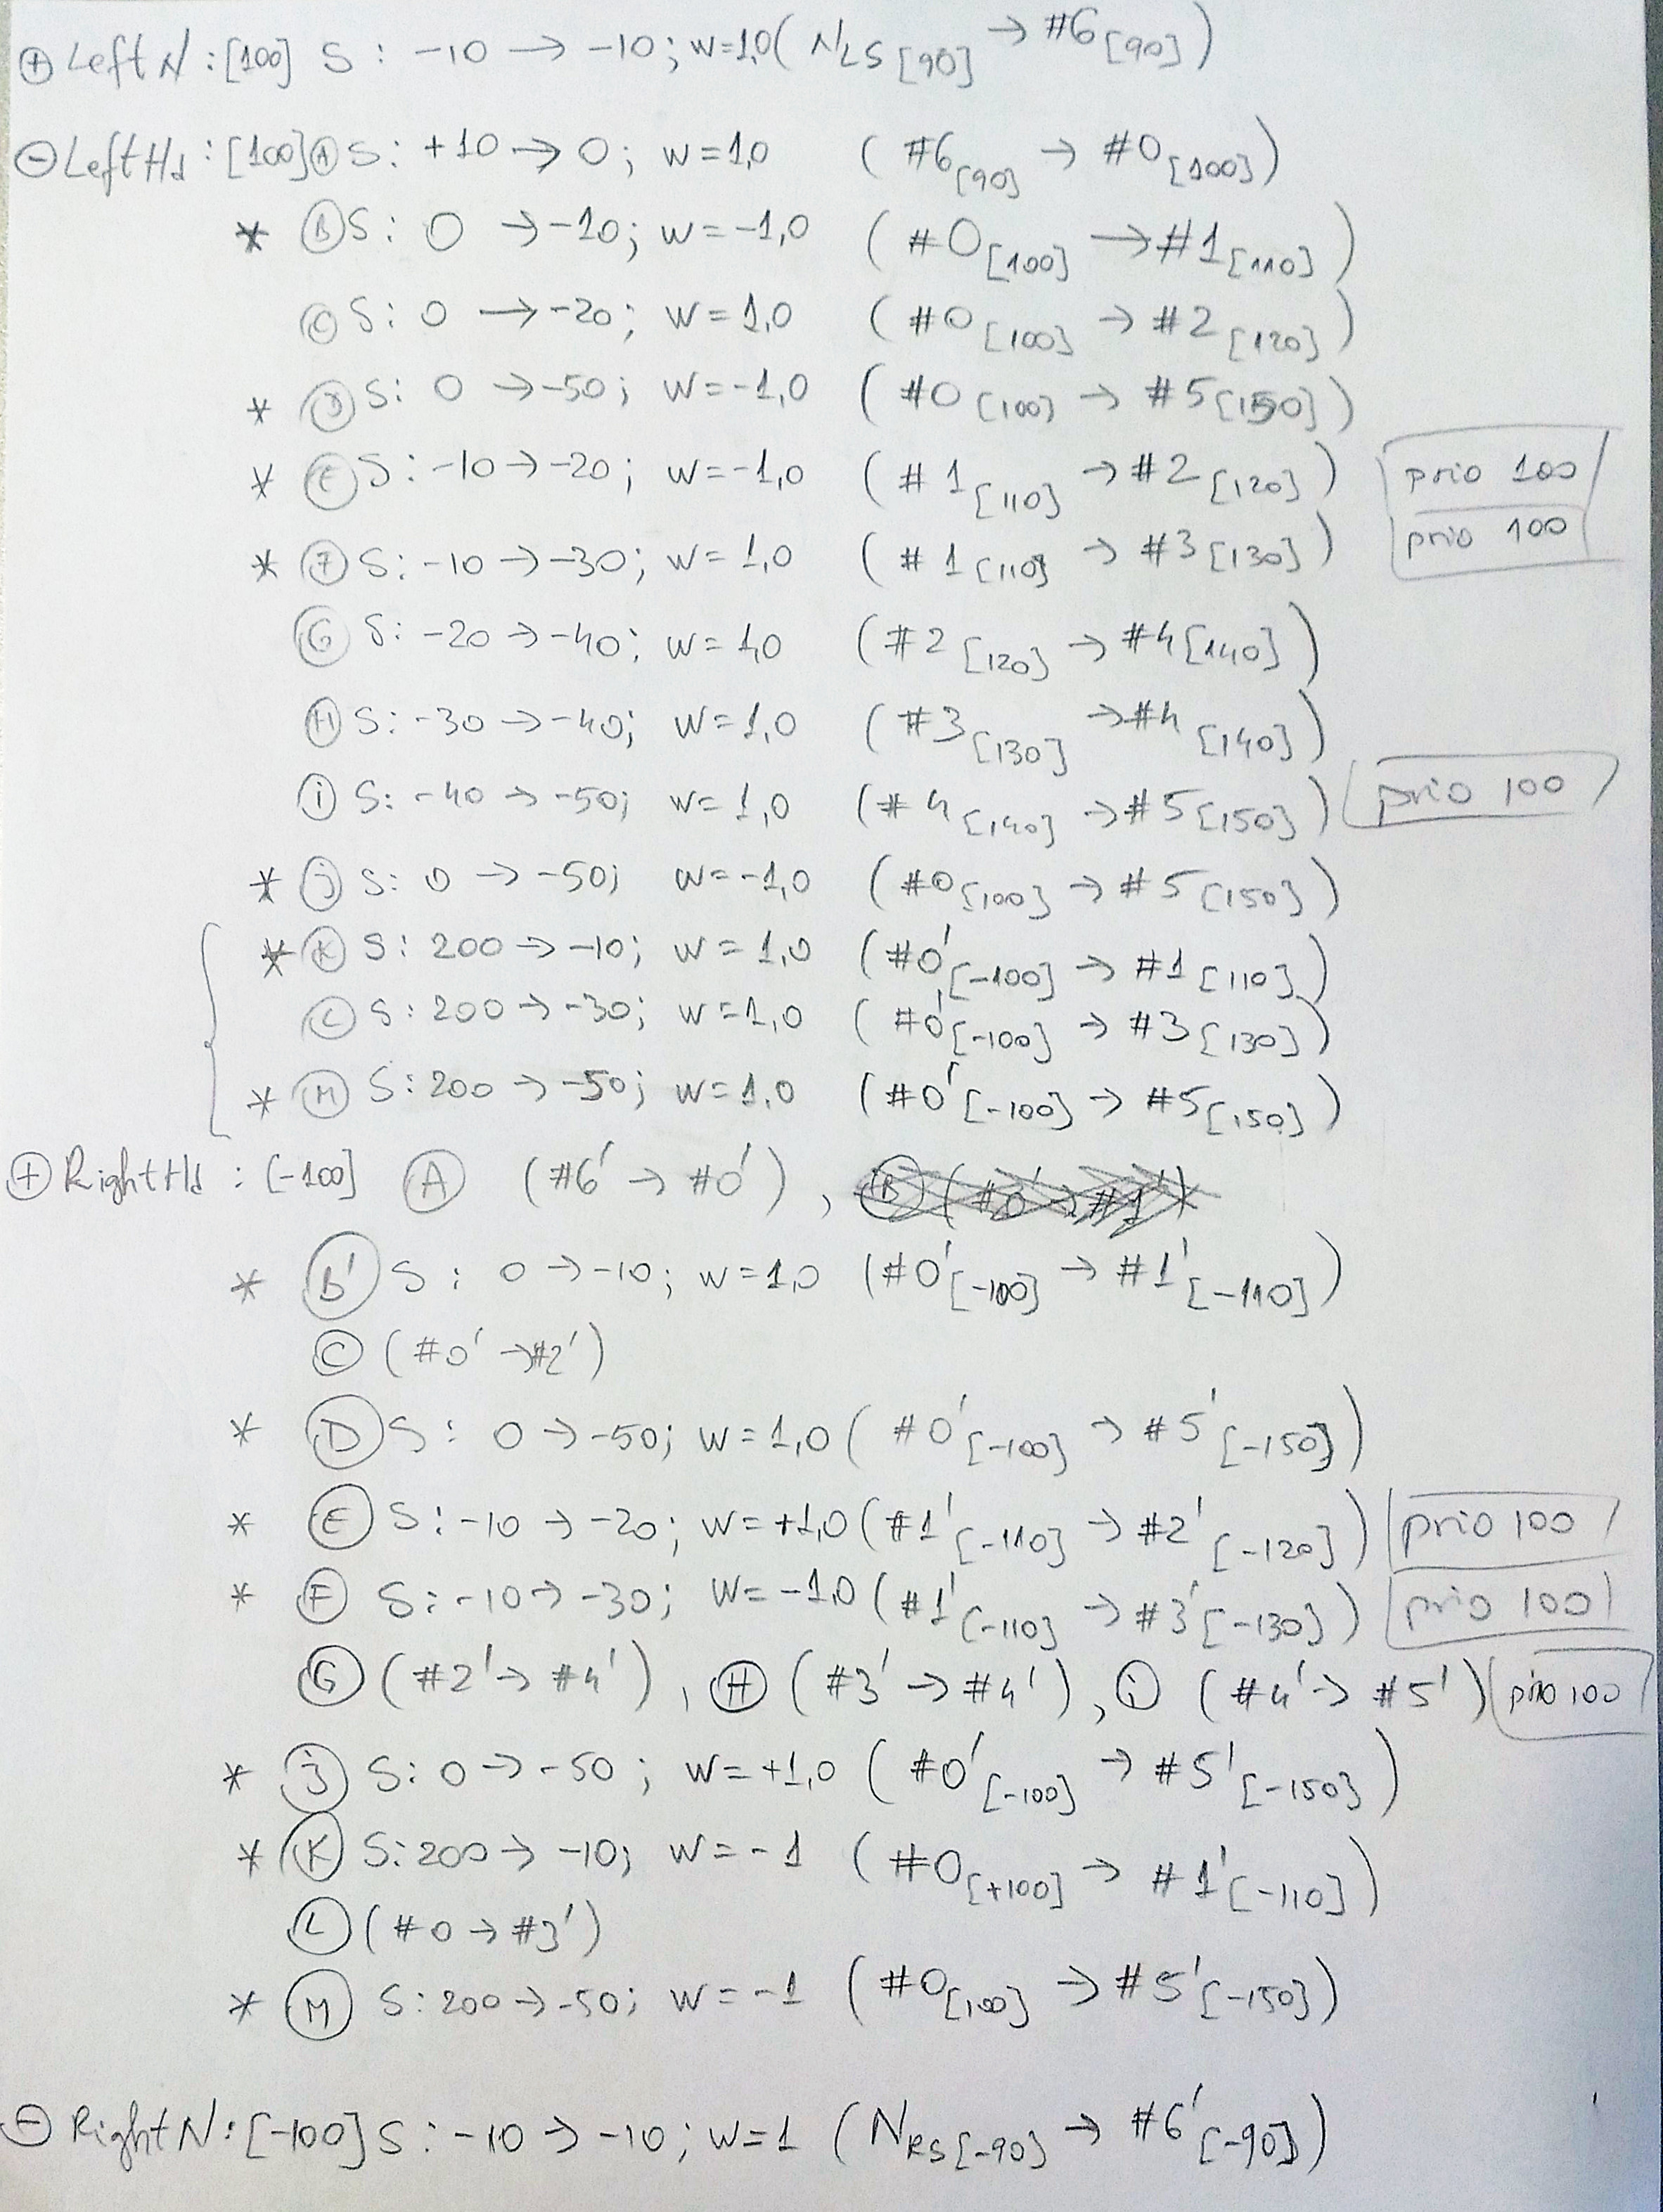 ⊕ LeftN : [100] S : -10 → -10 ; w=1,0 ( N_LS [90] → #6 [90] )
⊖ LeftHd : [100] Ⓐ S : +10 → 0 ; w=1,0 ( #6 [90] → #0 [100] )
* Ⓑ S : 0 → -10 ; w=-1,0 ( #0 [100] → #1 [110] )
Ⓒ S : 0 → -20 ; w=1,0 ( #0 [100] → #2 [120] )
* Ⓓ S : 0 → -50 ; w=-1,0 ( #0 [100] → #5 [150] )
* Ⓔ S : -10 → -20 ; w=-1,0 ( #1 [110] → #2 [120] ) prio 100
* Ⓕ S : -10 → -30 ; w=1,0 ( #1 [110] → #3 [130] ) prio 100
Ⓖ S : -20 → -40 ; w=1,0 ( #2 [120] → #4 [140] )
Ⓗ S : -30 → -40 ; w=1,0 ( #3 [130] → #4 [140] )
ⓘ S : -40 → -50 ; w=1,0 ( #4 [140] → #5 [150] ) prio 100
* ⓙ S : 0 → -50 ; w=-1,0 ( #0 [100] → #5 [150] )
* Ⓚ S : 200 → -10 ; w=1,0 ( #0' [-100] → #1 [110] )
Ⓛ S : 200 → -30 ; w=1,0 ( #0' [-100] → #3 [130] )
* Ⓜ S : 200 → -50 ; w=1,0 ( #0' [-100] → #5 [150] )
⊕ RightHd : [-100] Ⓐ ( #6' → #0' ) , Ⓑ ( #0' → #1' )
* (B') S : 0 → -10 ; w=1,0 ( #0' [-100] → #1' [-110] )
Ⓒ ( #0' → #2' )
* Ⓓ S : 0 → -50 ; w=1,0 ( #0' [-100] → #5' [-150] )
* Ⓔ S : -10 → -20 ; w=+1,0 ( #1' [-110] → #2' [-120] ) prio 100
* Ⓕ S : -10 → -30 ; w=-1,0 ( #1' [-110] → #3' [-130] ) prio 100
Ⓖ ( #2' → #4' ) , Ⓗ ( #3' → #4' ) , ⓘ ( #4' → #5' ) prio 100
* ⓙ S : 0 → -50 ; w=+1,0 ( #0' [-100] → #5' [-150] )
* Ⓚ S : 200 → -10 ; w=-1 ( #0 [+100] → #1' [-110] )
Ⓛ ( #0 → #3' )
* Ⓜ S : 200 → -50 ; w=-1 ( #0 [100] → #5' [-150] )
⊖ RightN : [-100] S : -10 → -10 ; w=1 ( N_RS [-90] → #6' [-90] )